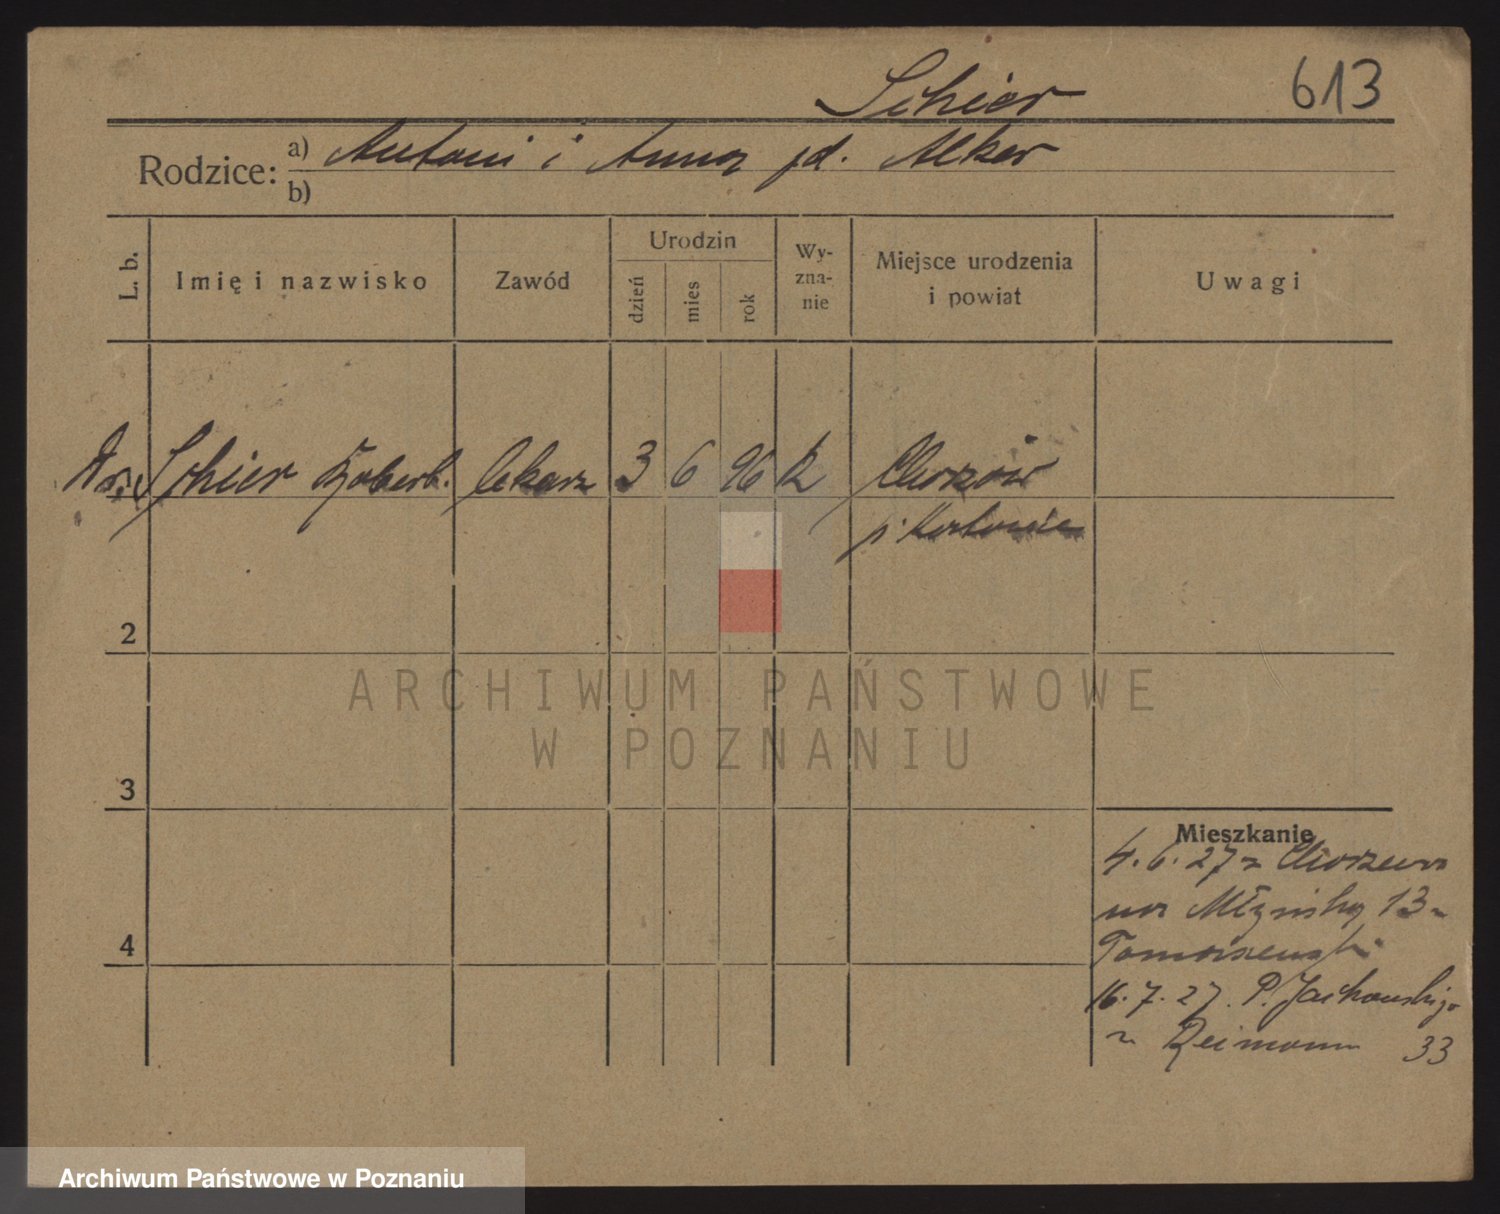 Schier
613
Rodzice: a) Antoni i Anna zd. Alker
b)
L. b.
Imię i nazwisko
Zawód
Urodzin
dzień
mies
rok
Wy-
zna-
nie
Miejsce urodzenia
i powiat
Uwagi
Dr. Schier Robert. lekarz 3 6 96 k Chorzów
p. Katowice
2
3
4
Mieszkanie
4.6.27 z Chorzowa
na Młyńską 13 u
Tomaszewski
16.7.27. P. Jackowskiego
u Reimann 33
ARCHIWUM PAŃSTWOWE
W POZNANIU
Archiwum Państwowe w Poznaniu